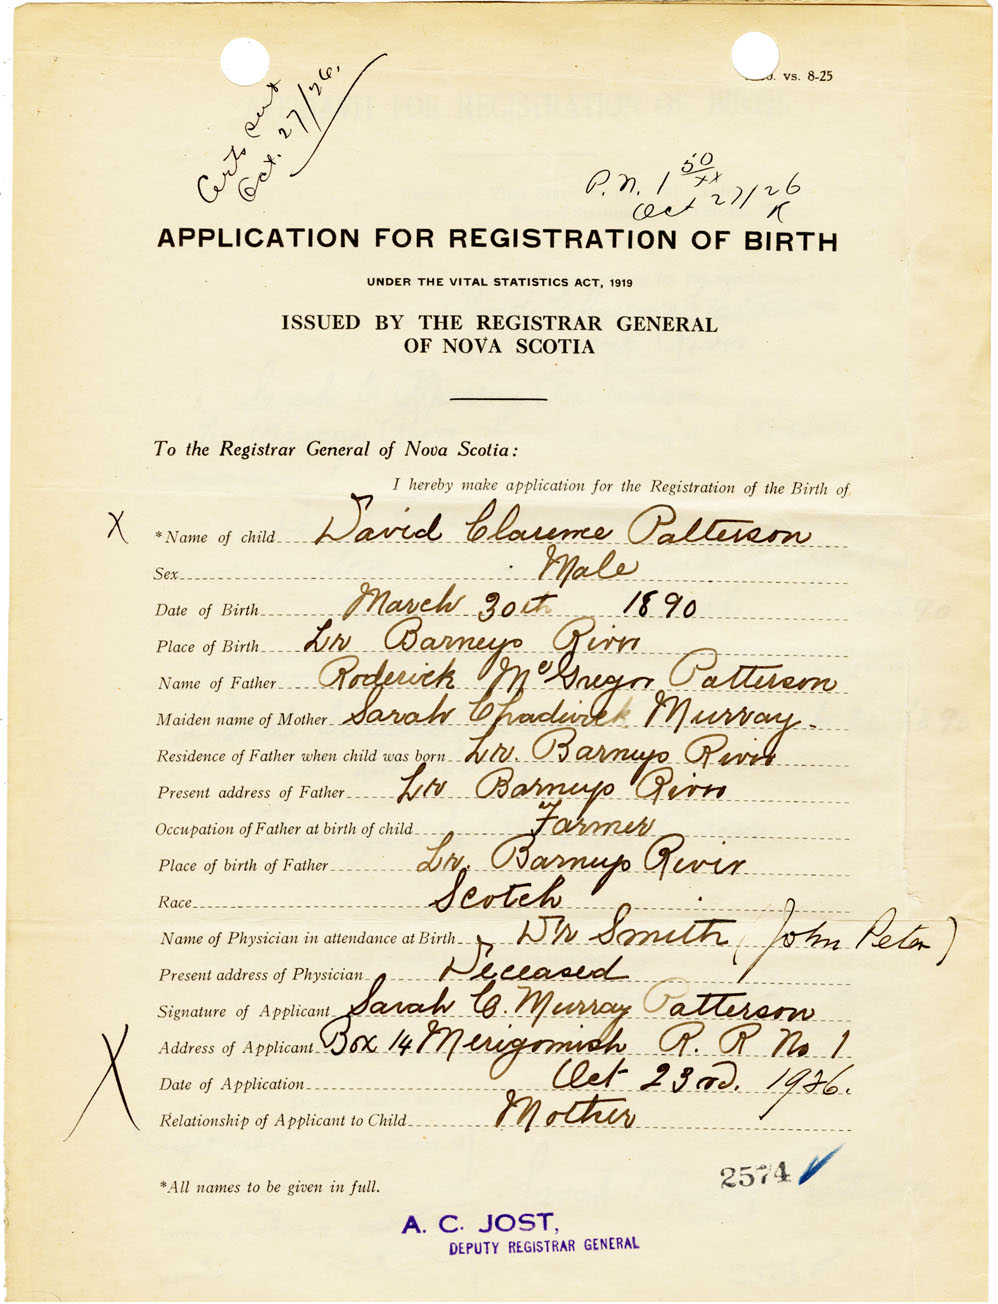 vs. 8-25
Certs sent
Oct. 27/26.
P.N. 1 50/xx
Oct 27/26
K
APPLICATION FOR REGISTRATION OF BIRTH
UNDER THE VITAL STATISTICS ACT, 1919
ISSUED BY THE REGISTRAR GENERAL
OF NOVA SCOTIA
To the Registrar General of Nova Scotia:
I hereby make application for the Registration of the Birth of
X *Name of child David Clarence Patterson
Sex Male
Date of Birth March 30th 1890
Place of Birth Lr Barneys River
Name of Father Roderick McGregor Patterson
Maiden name of Mother Sarah Chadwick Murray.
Residence of Father when child was born Lr. Barneys River
Present address of Father Lr Barneys River
Occupation of Father at birth of child Farmer
Place of birth of Father Lr. Barneys River
Race Scotch
Name of Physician in attendance at Birth Dr Smith (John Peter)
Present address of Physician Deceased
Signature of Applicant Sarah C. Murray Patterson
X Address of Applicant Box 14 Merigomish R. R No 1
Date of Application Oct 23rd. 1926.
Relationship of Applicant to Child Mother
2574
*All names to be given in full.
A. C. JOST,
DEPUTY REGISTRAR GENERAL